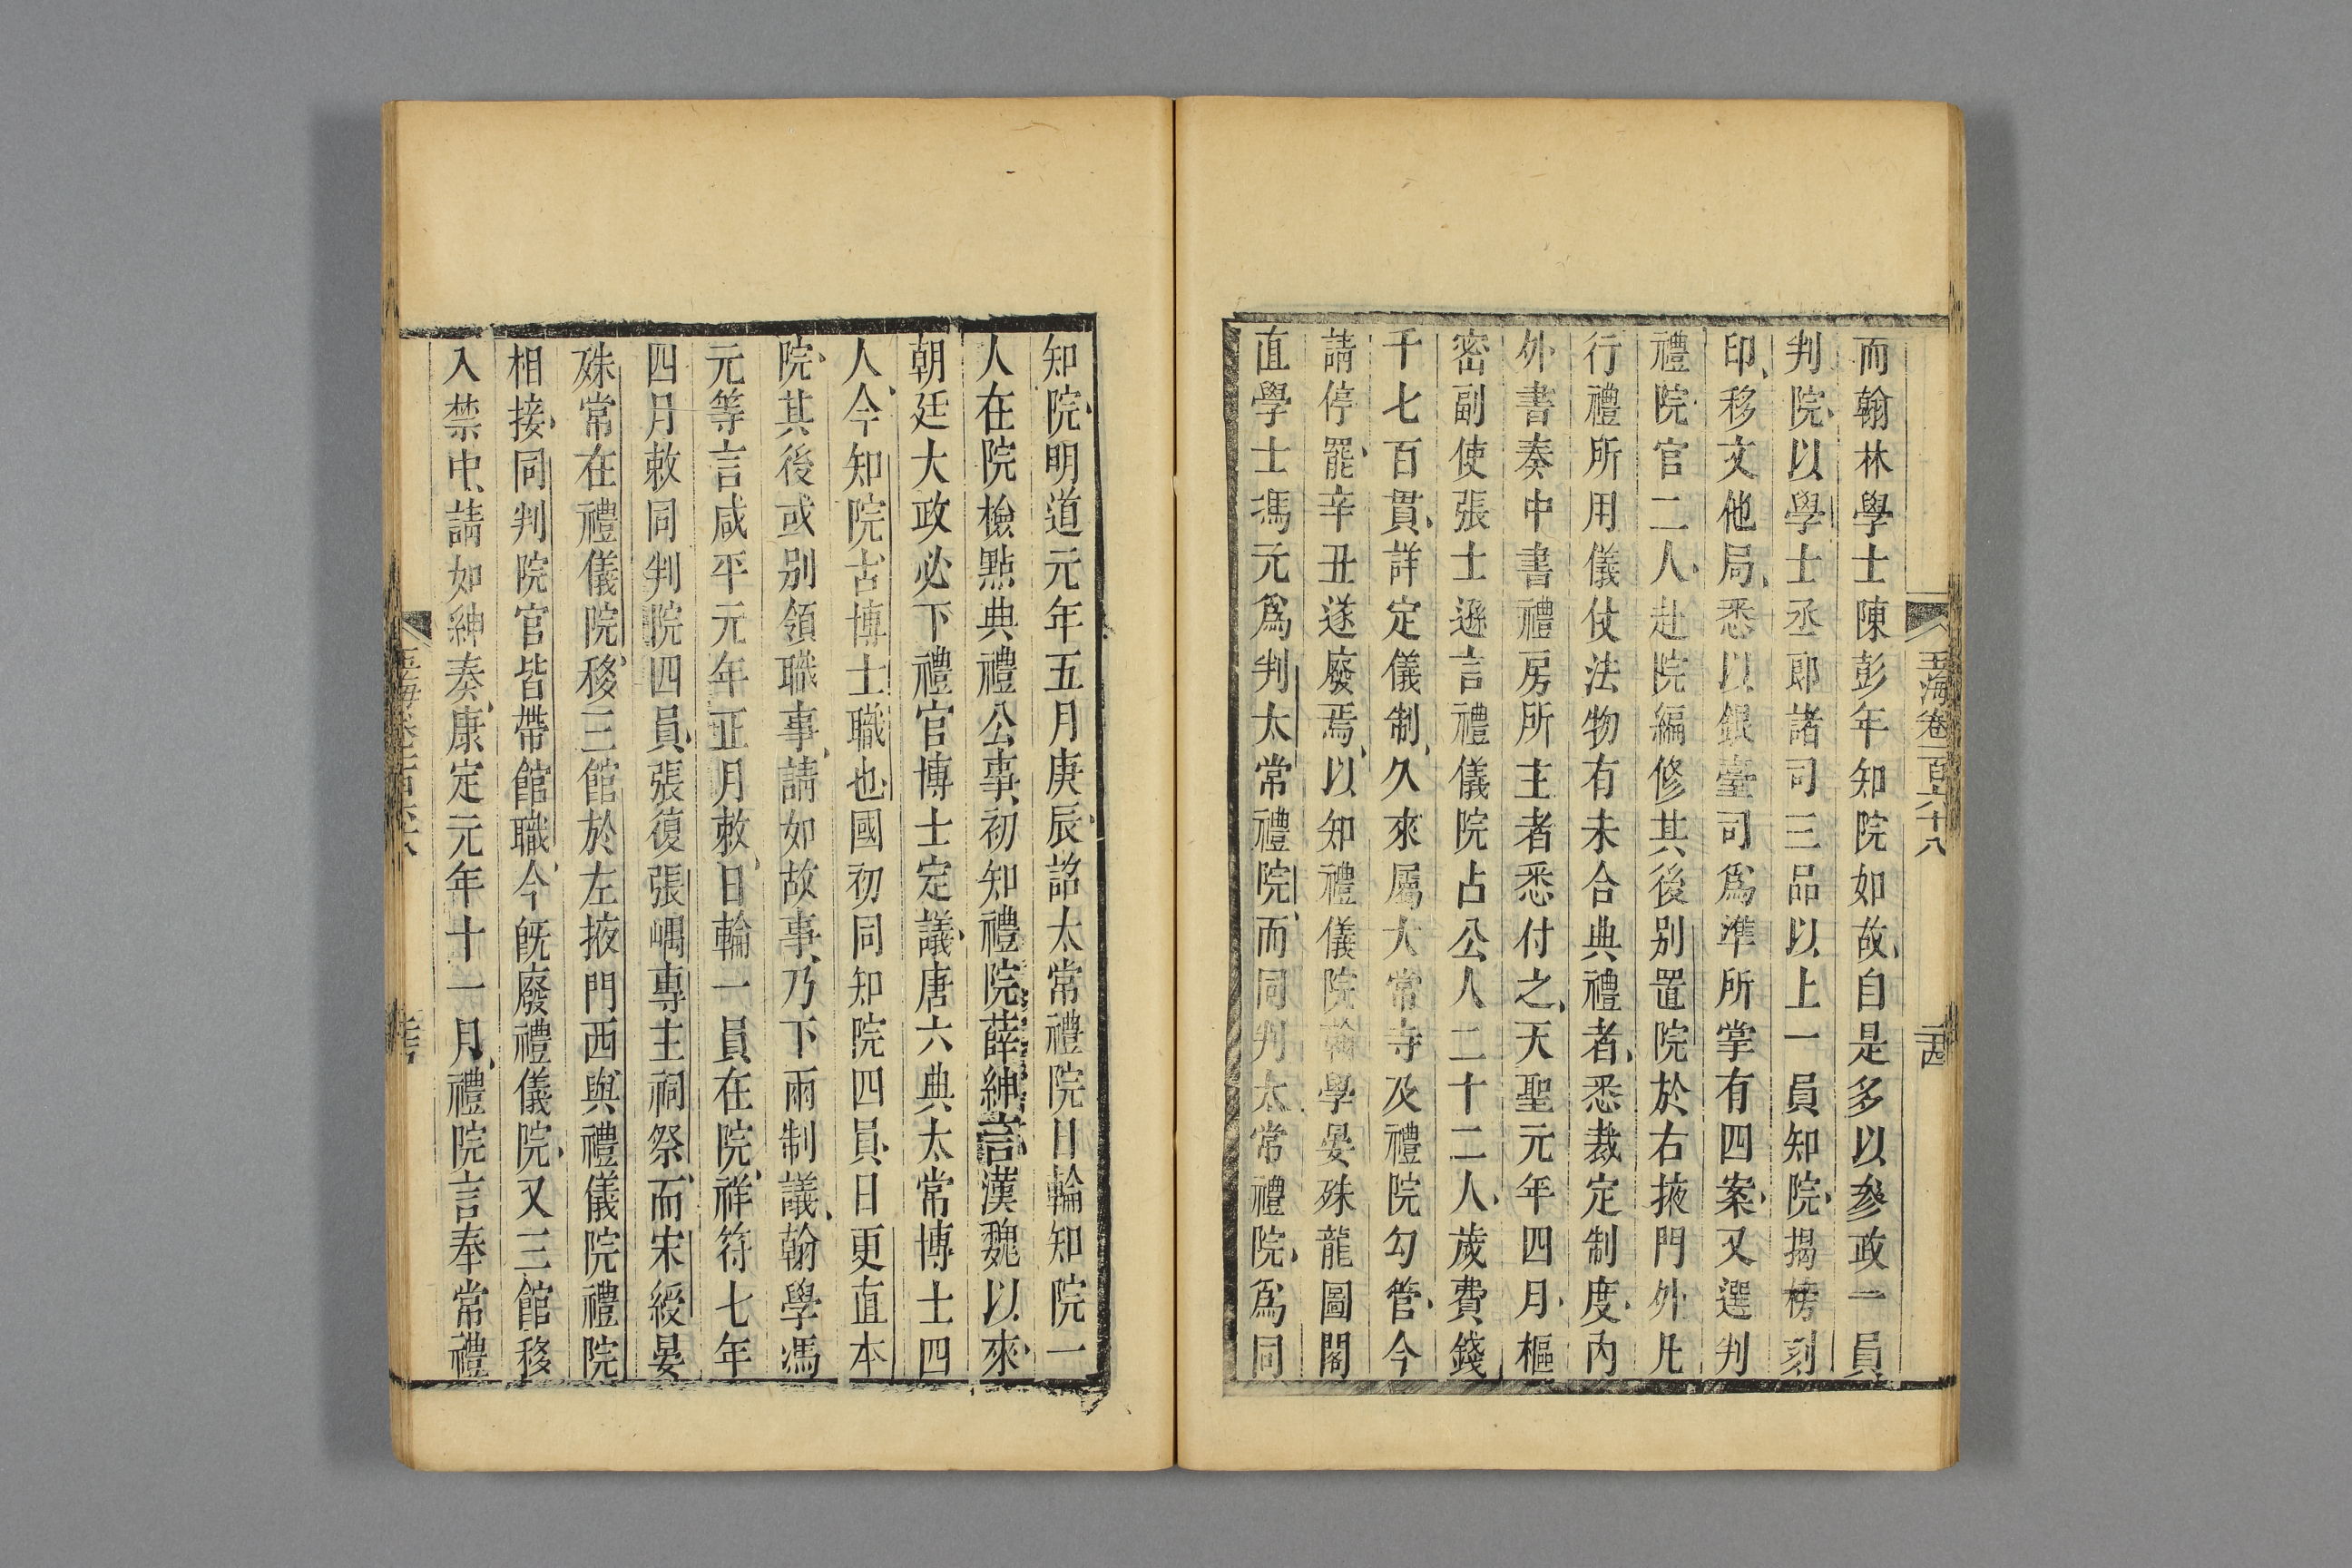 玉海卷一百六十八
二十四
而翰林學士陳彭年知院如故自是多以參政一員
判院以學士丞郎諸司三品以上一員知院揭榜刻
印移文他局悉以銀臺司爲準所掌有四案又選判
禮院官二人赴院編修其後別置院於右掖門外凡
行禮所用儀仗法物有未合典禮者悉裁定制度内
外書奏中書禮房所主者悉付之天聖元年四月樞
密副使張士遜言禮儀院占公人二十二人歲費錢
千七百貫詳定儀制久來屬大常寺及禮院勾管今
請停罷辛丑遂廢焉以知禮儀院翰學晏殊龍圖閣
直學士馮元爲判太常禮院而同判太常禮院爲同
知院明道元年五月庚辰詔太常禮院日輪知院一
人在院檢點典禮公事初知禮院薛紳言漢魏以來
朝廷大政必下禮官博士定議唐六典太常博士四
人今知院古博士職也國初同知院四員日更直本
院其後或别領職事請如故事乃下兩制議翰學馮
元等言咸平元年正月敕日輪一員在院祥符七年
四月敕同判院四員張復張嵎專主祠祭而宋綬晏
殊常在禮儀院移三館於左掖門西與禮儀院禮院
相接同判院官皆帶館職今旣廢禮儀院又三館移
入禁中請如紳奏康定元年十一月禮院言奉常禮